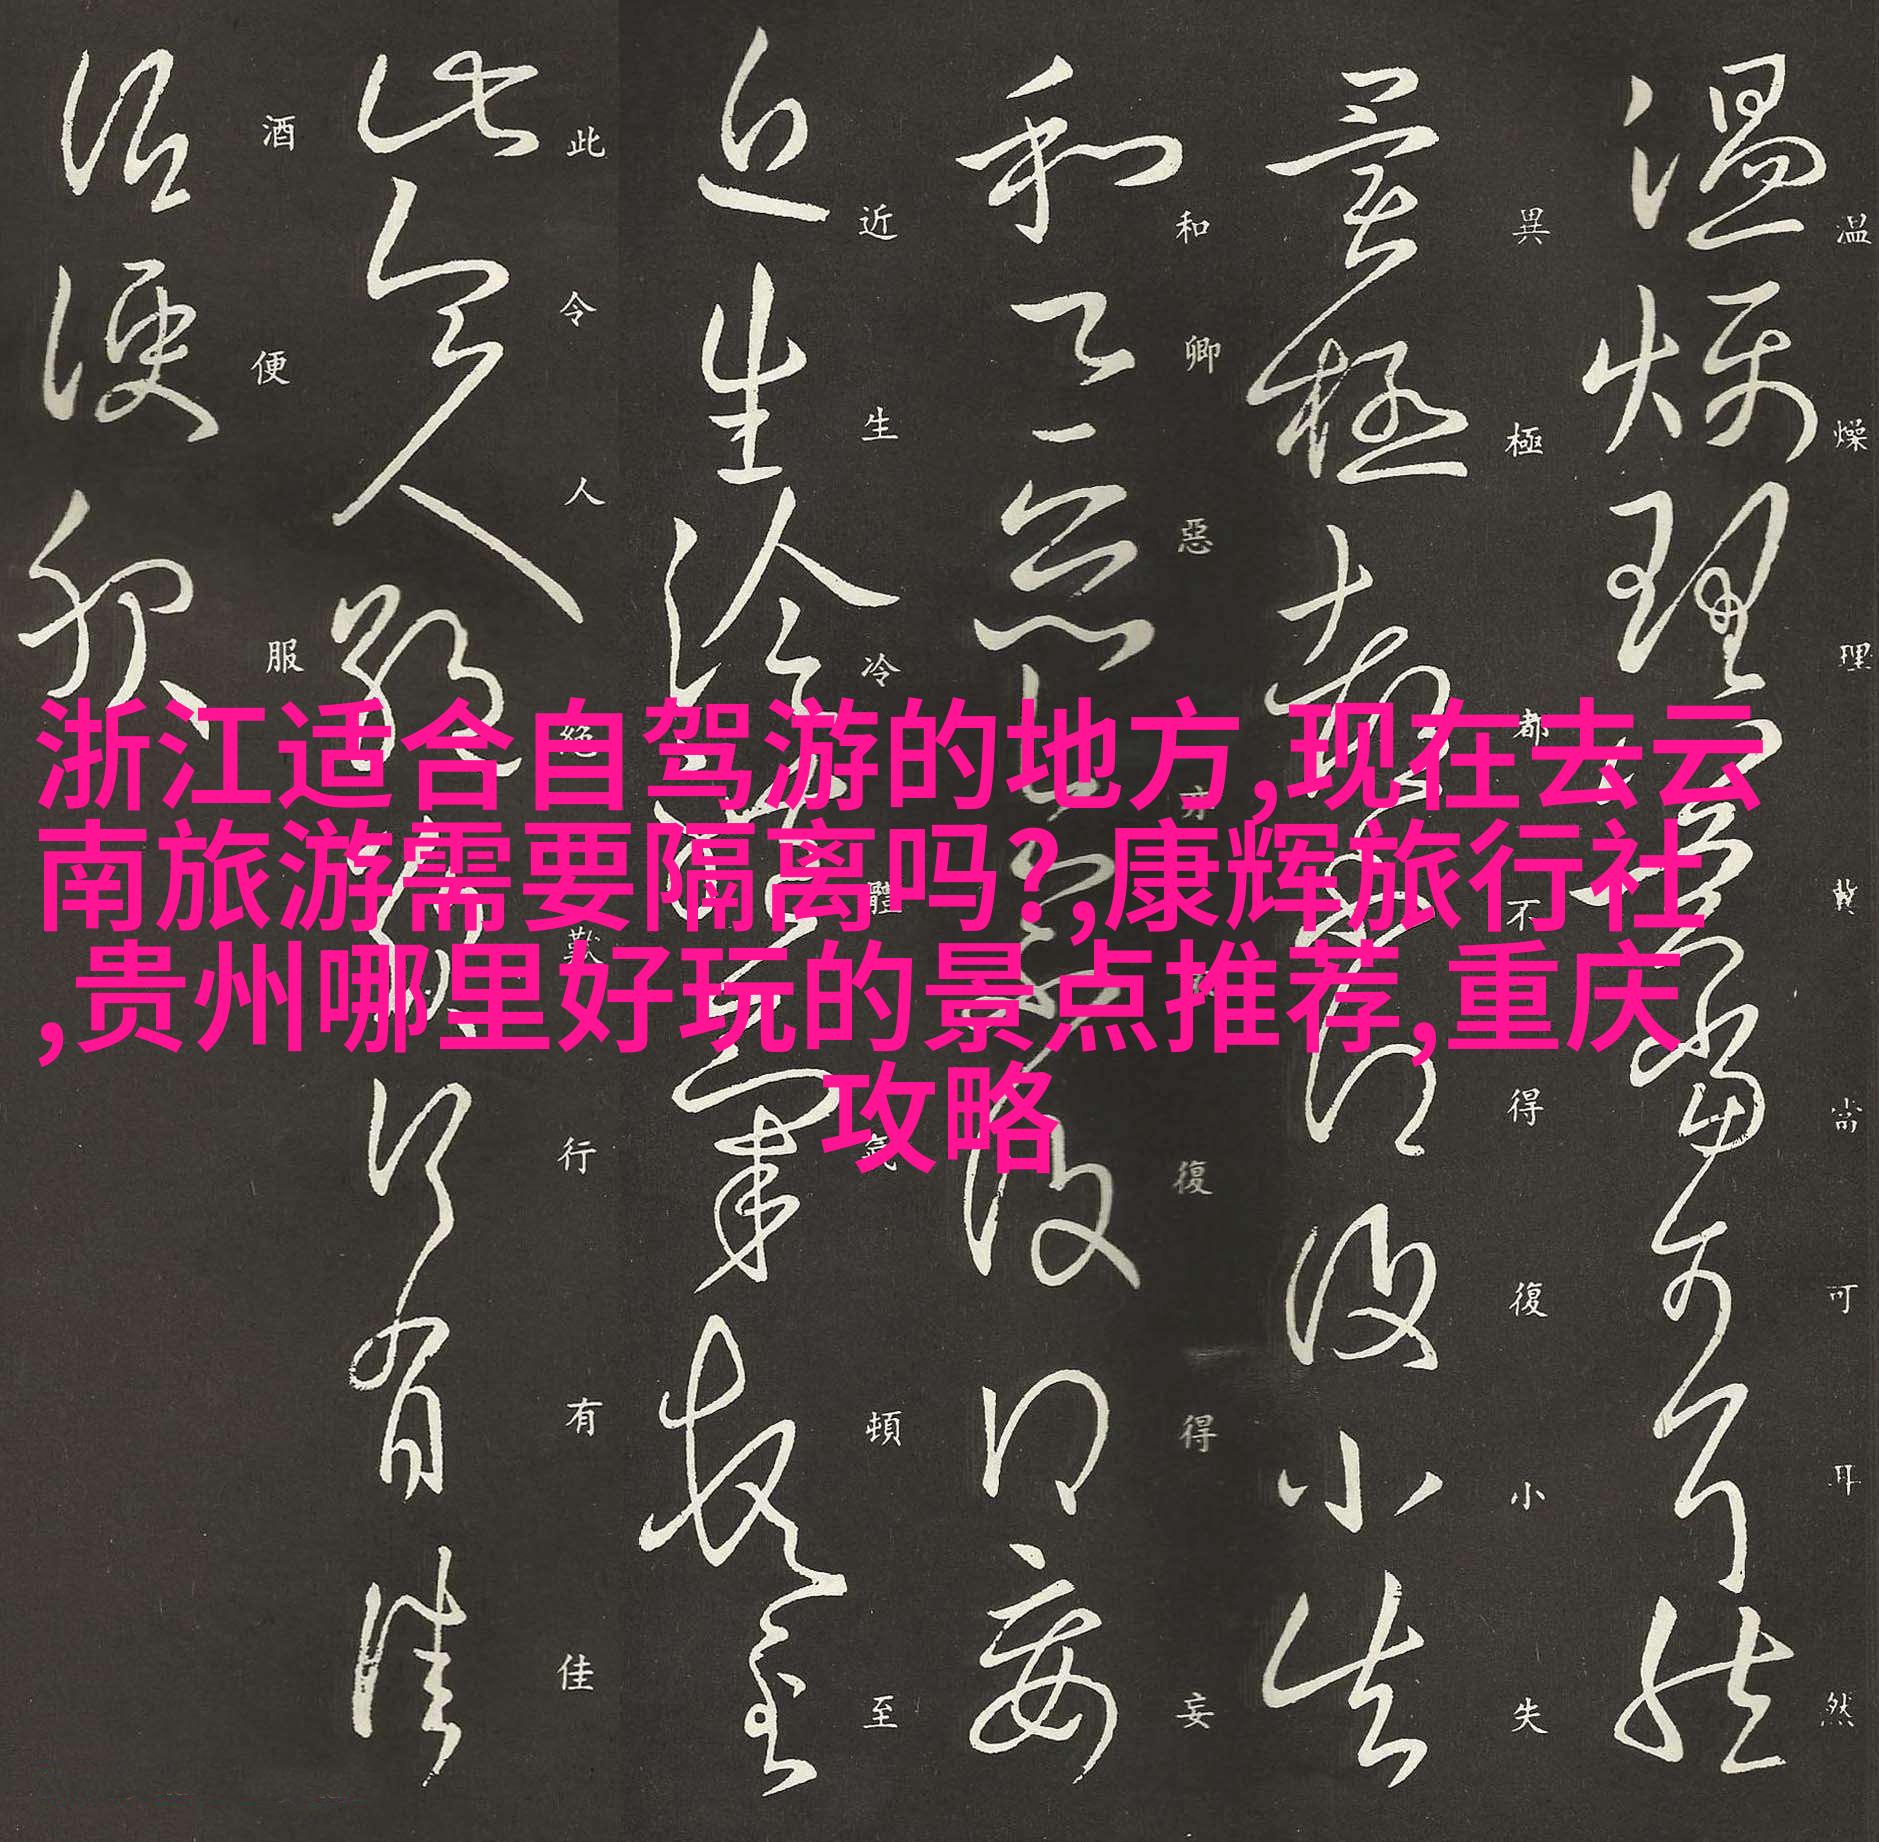 浙江适合自驾游的地方,现在去云
南旅游需要隔离吗?,康辉旅行社
,贵州哪里好玩的景点推荐,重庆
攻略
温燥理冀當可耳然
異極都不得復小失
和卿惡亦復得妄
近生冷體氣頓至
此令人絶歎行有佳
酒便服